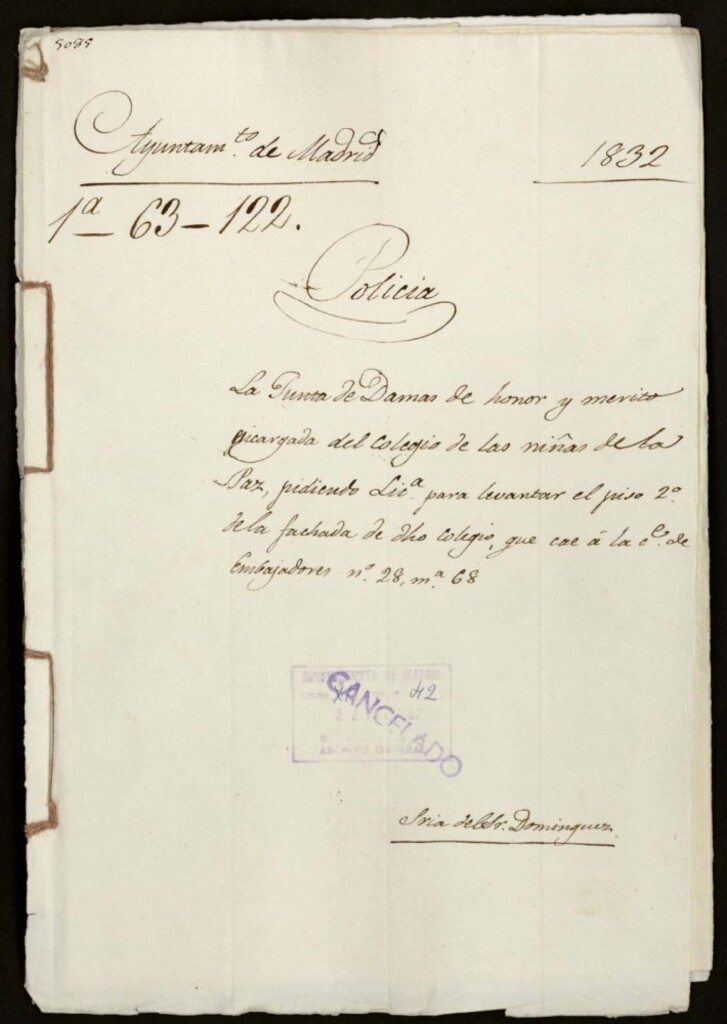 5085
Ayuntam.to de Madrid
1832
1a 63-122.
Policia
La Junta de Damas de honor y merito
encargada del Colegio de las niñas de la
Paz, pidiendo Lic.a para levantar el piso 2.o
de la fachada de dho Colegio, que cae á la c.e de
Embajadores n.o 28, m.a 68
AYUNTAMIENTO DE MADRID
42
CANCELADO
22
ARCHIVO
Sria del Sr. Dominguez.